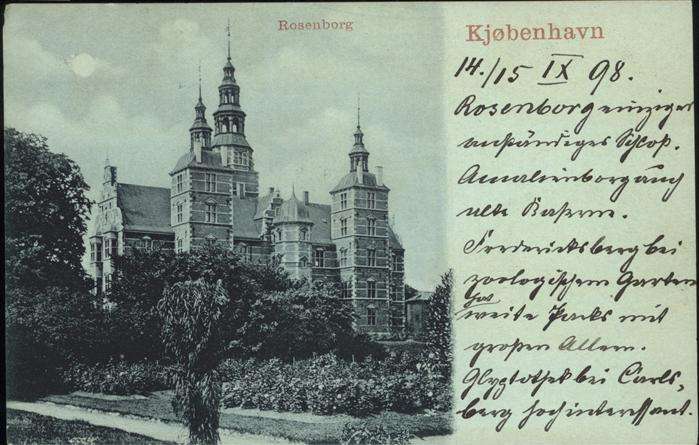 Rosenborg
Kjøbenhavn
14./15 IX 98.
Rosenborg einziges
anständiges Schloß.
Amalienborg auch
alte Kaserne.
Fredericksberg bei
zoologischem Garten
hat
weite Parks mit
großen Alleen.
Glyptothek bei Carls-
berg hochinteressant.